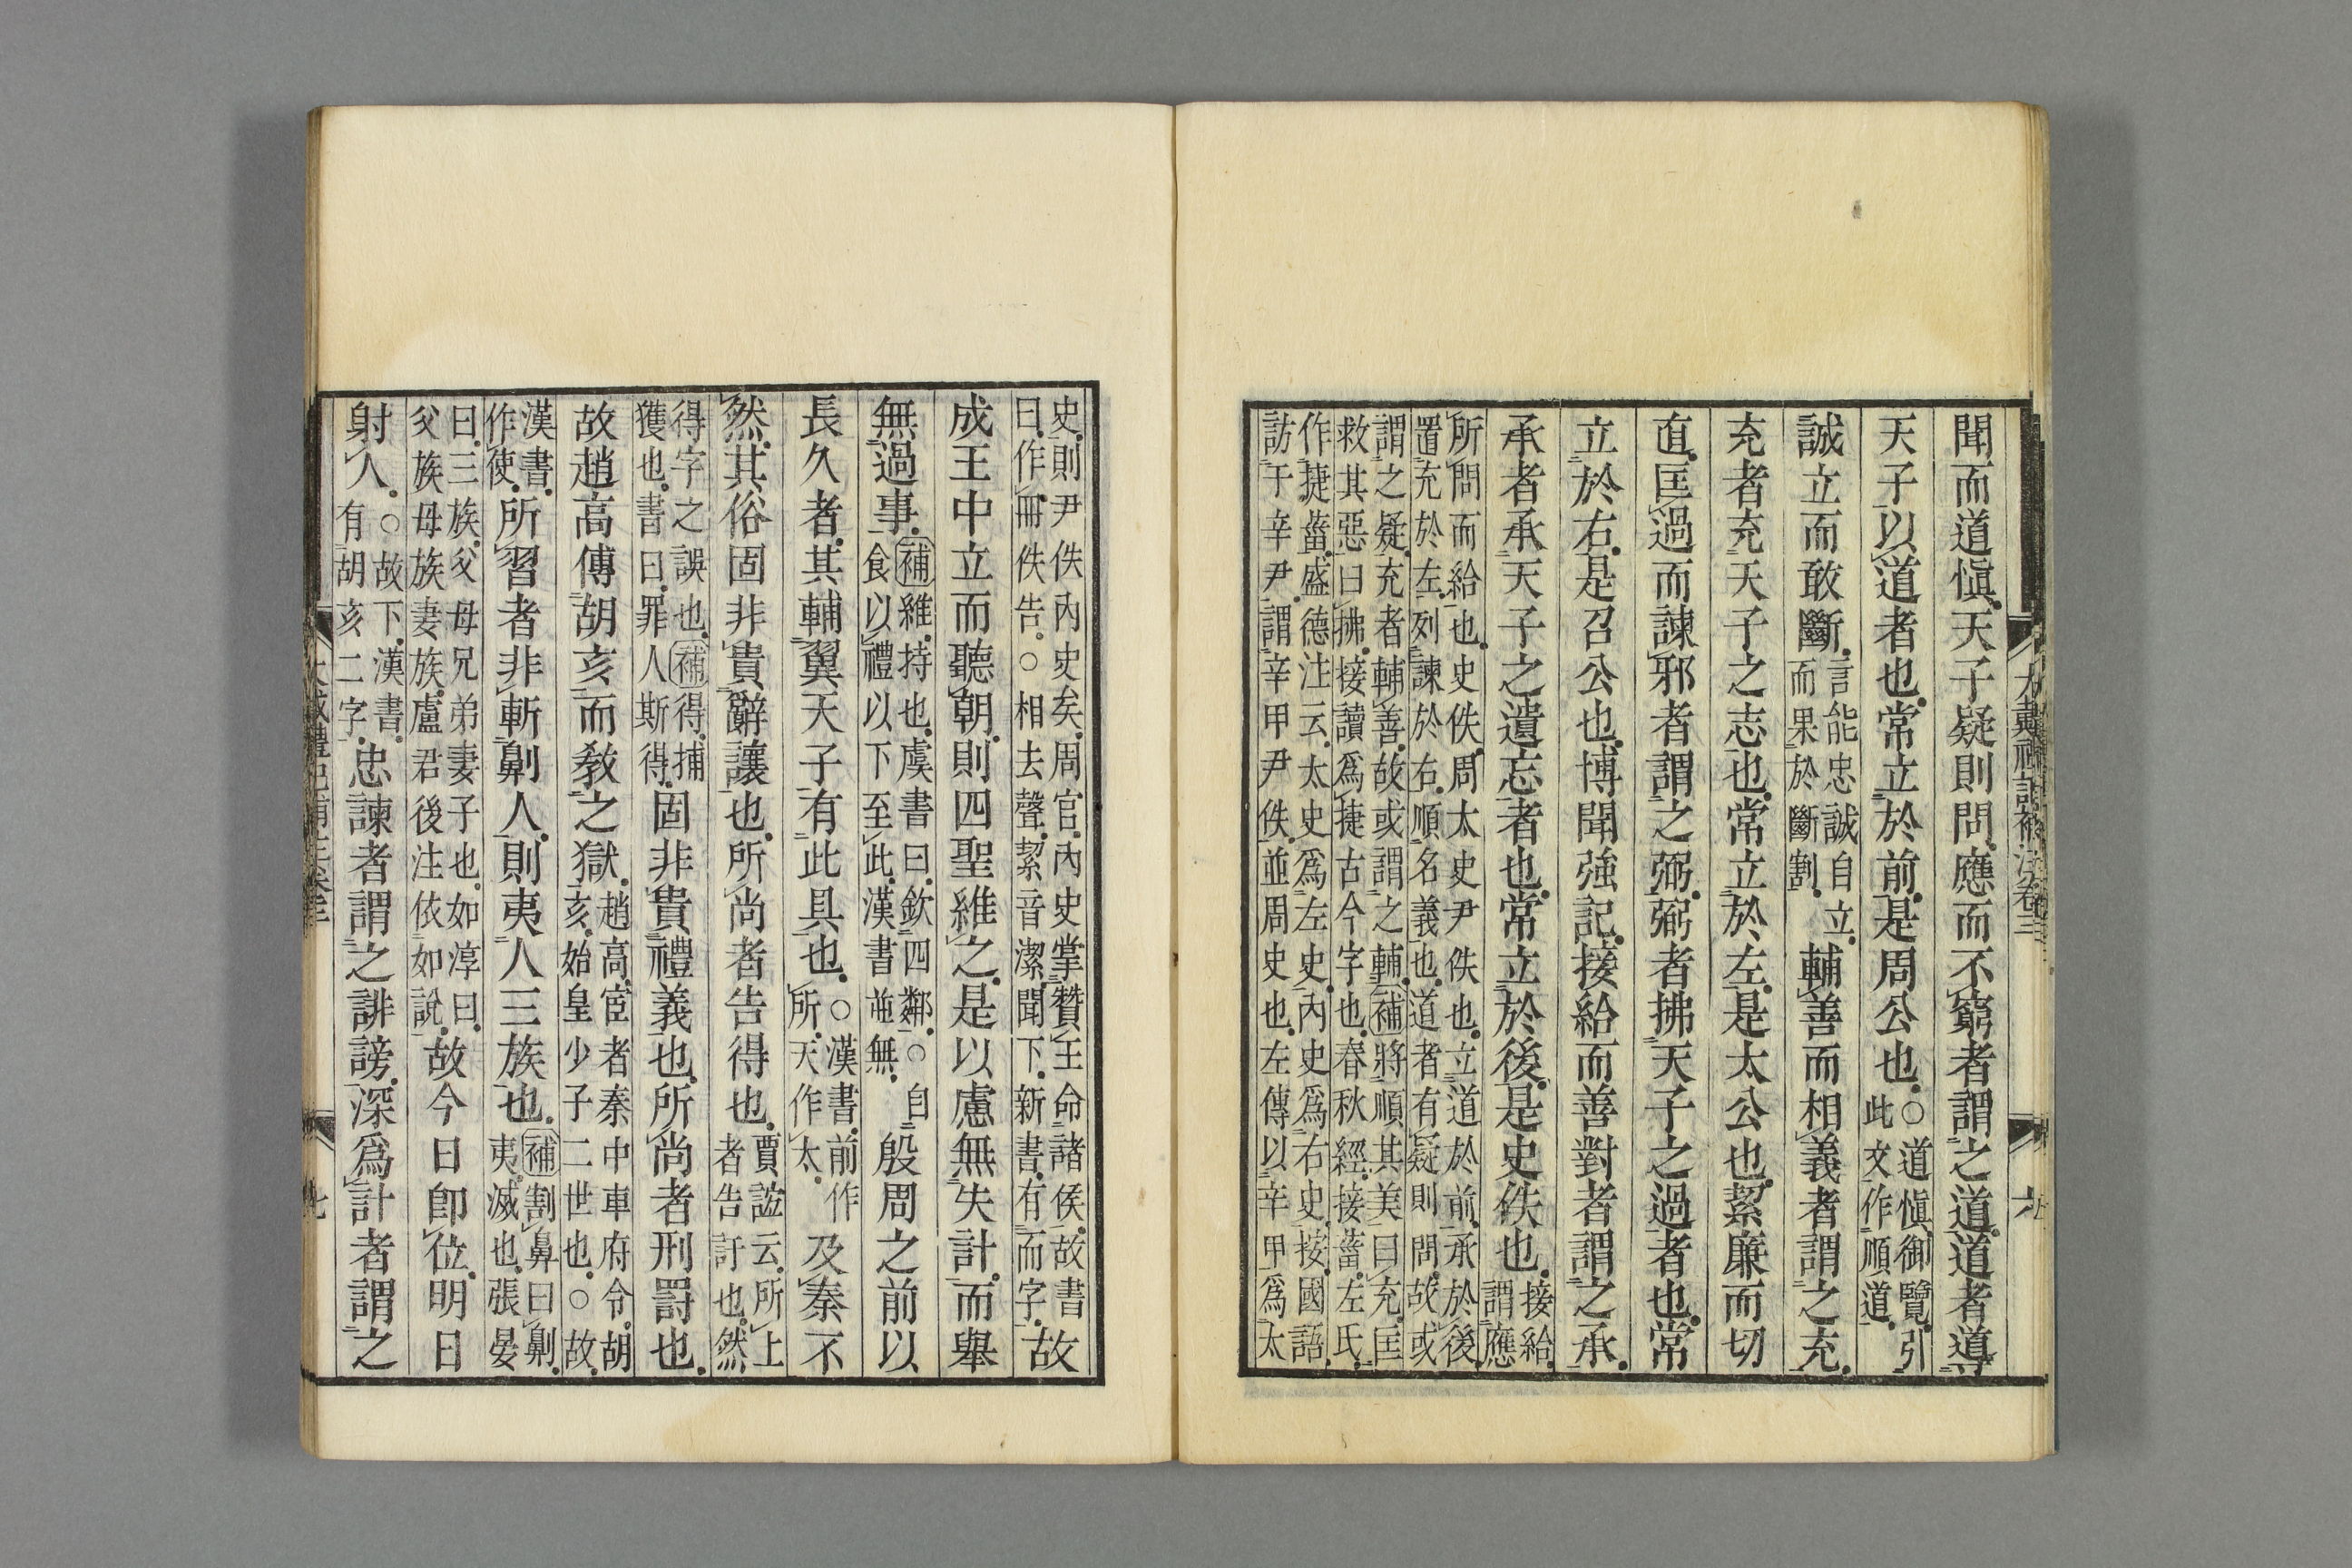 大戴禮記補注卷三 六
聞而道愼。天子疑則問。應而不窮者謂之道。道者導
天子以道者也。常立於前。是周公也。○道愼御覽引此文作順道
誠立而敢斷。言能忠誠自立。而果於斷割。輔善而相義者謂之充。
充者充天子之志也。常立於左。是太公也。絜廉而切
直。匡過而諫邪者謂之弼。弼者拂天子之過者也。常
立於右。是召公也。博聞強記。接給而善對者謂之承。
承者承天子之遺忘者也。常立於後。是史佚也。接給。謂應
所問而給也。史佚。周太史尹佚也。立道於前。承於後。
置充於左。列諫於右。順名義也。道者有疑則問。故或
謂之疑。充者輔善。故或謂之輔。補將順其美曰充。匡
救其惡曰拂。接讀爲捷古今字也。春秋經接菑。左氏
作捷菑。盛德注云。太史爲左史。內史爲右史。按國語。
訪于辛尹。謂辛甲尹佚。並周史也。左傳以辛甲爲太
史。則尹佚內史矣。周官。內史掌贊王命諸侯。故書
曰。作冊佚告。○相去聲。絜音潔。聞下。新書。有而字。故
成王中立而聽朝。則四聖維之。是以慮無失計。而舉
無過事。補維。持也。虞書曰。欽四鄰。○自食以禮以下至此漢書並無。殷周之前以
長久者。其輔翼天子有此具也。○漢書。前作所。天作太。及秦不
然。其俗固非貴辭讓也。所尚者告得也。賈誼云。所上者告訐也。然
得字之誤也。補得。捕獲也。書曰。罪人斯得。固非貴禮義也。所尚者刑罰也。
故趙高傅胡亥而敎之獄。趙高。宦者秦中車府令。胡亥。始皇少子二世也。○故。
漢書。作使。所習者非斬劓人。則夷人三族也。補割鼻曰劓。夷。滅也。張晏
曰。三族。父母兄弟妻子也。如淳曰。父族母族妻族。盧君後注依如說。故今日卽位。明日
射人。○故下。漢書。有胡亥二字。忠諫者謂之誹謗。深爲計者謂之
大戴禮記補注卷三 七